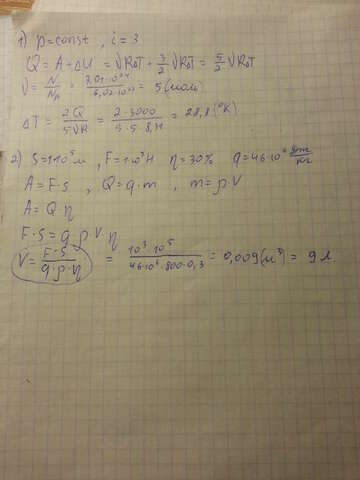 1) p=const, i=3
Q = A+ΔU = νRΔT + 3/2 νRΔT = 5/2 νRΔT
ν = N/Nₐ = 3,01·10²⁴/6,02·10²³ = 5 (мол)
ΔT = 2Q/5νR = 2·3000/5·5·8,31 = 28,8 (°K)
2) S=1·10⁵м, F=1·10³Н η=30% q=46·10⁶ Дж/кг
A=F·S, Q=q·m, m=ρ·V
A=Q·η
F·S=q·ρ·V·η
V=F·S/q·ρ·η = 10³·10⁵/46·10⁶·800·0,3 = 0,009(м³) = 9 л.